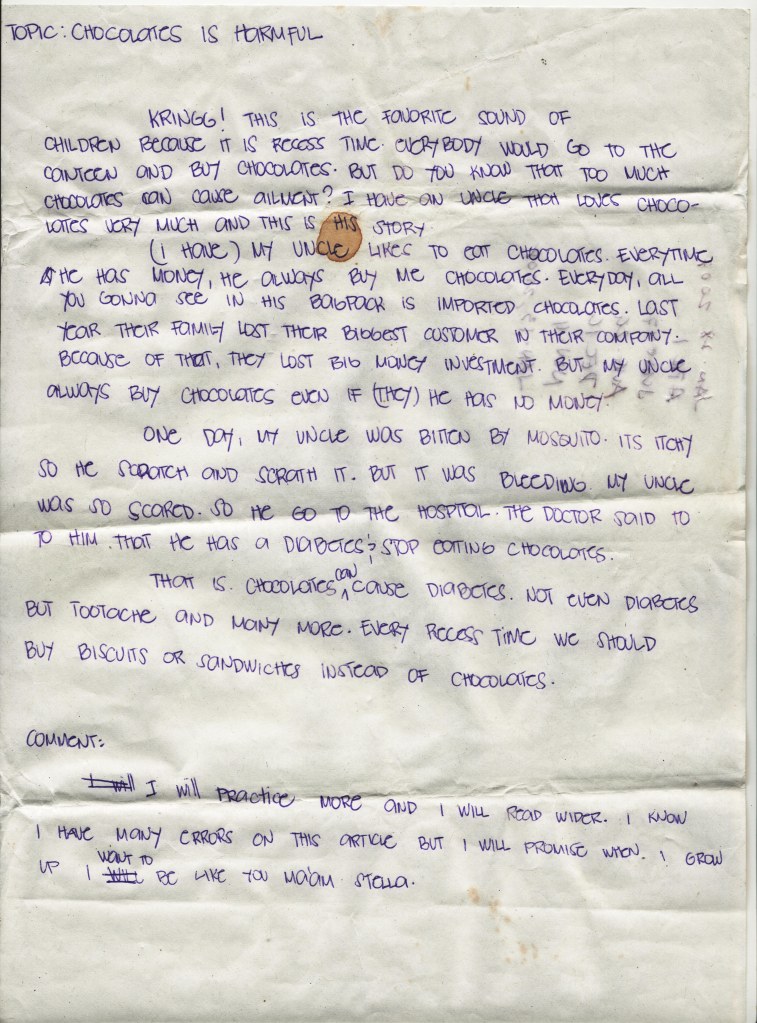 TOPIC: CHOCOLATES IS HARMFUL
KRINGG! THIS IS THE FAVORITE SOUND OF
CHILDREN BECAUSE IT IS RECESS TIME. EVERYBODY WOULD GO TO THE
CANTEEN AND BUY CHOCOLATES. BUT DO YOU KNOW THAT TOO MUCH
CHOCOLATES CAN CAUSE AILMENT? I HAVE AN UNCLE THAT LOVES CHOCO-
LATES VERY MUCH AND THIS IS HIS STORY
(I HAVE) MY UNCLE LIKES TO EAT CHOCOLATES. EVERYTIME
HE HAS MONEY, HE ALWAYS BUY ME CHOCOLATES. EVERYDAY, ALL
YOU GONNA SEE IN HIS BAGPACK IS IMPORTED CHOCOLATES. LAST
YEAR THEIR FAMILY LOST THEIR BIGGEST CUSTOMER IN THEIR COMPANY.
BECAUSE OF THAT, THEY LOST BIG MONEY INVESTMENT. BUT MY UNCLE
ALWAYS BUY CHOCOLATES EVEN IF (THEY) HE HAS NO MONEY.
ONE DAY, MY UNCLE WAS BITTEN BY MOSQUITO. ITS ITCHY
SO HE SCRATCH AND SCRATH IT. BUT IT WAS BLEEDING. MY UNCLE
WAS SO SCARED. SO HE GO TO THE HOSPITAL. THE DOCTOR SAID TO
TO HIM. THAT HE HAS A DIABETES & STOP EATING CHOCOLATES.
THAT IS. CHOCOLATES CAN CAUSE DIABETES. NOT EVEN DIABETES
BUT TOOTACHE AND MANY MORE. EVERY RECESS TIME WE SHOULD
BUY BISCUITS OR SANDWICHES INSTEAD OF CHOCOLATES.
COMMENT:
I will I will PRACTICE MORE AND I WILL READ WIDER. I KNOW
I HAVE MANY ERRORS ON THIS ARTICLE BUT I WILL PROMISE WHEN. I GROW
UP I WANT TO BE LIKE YOU MA'AM STELLA.